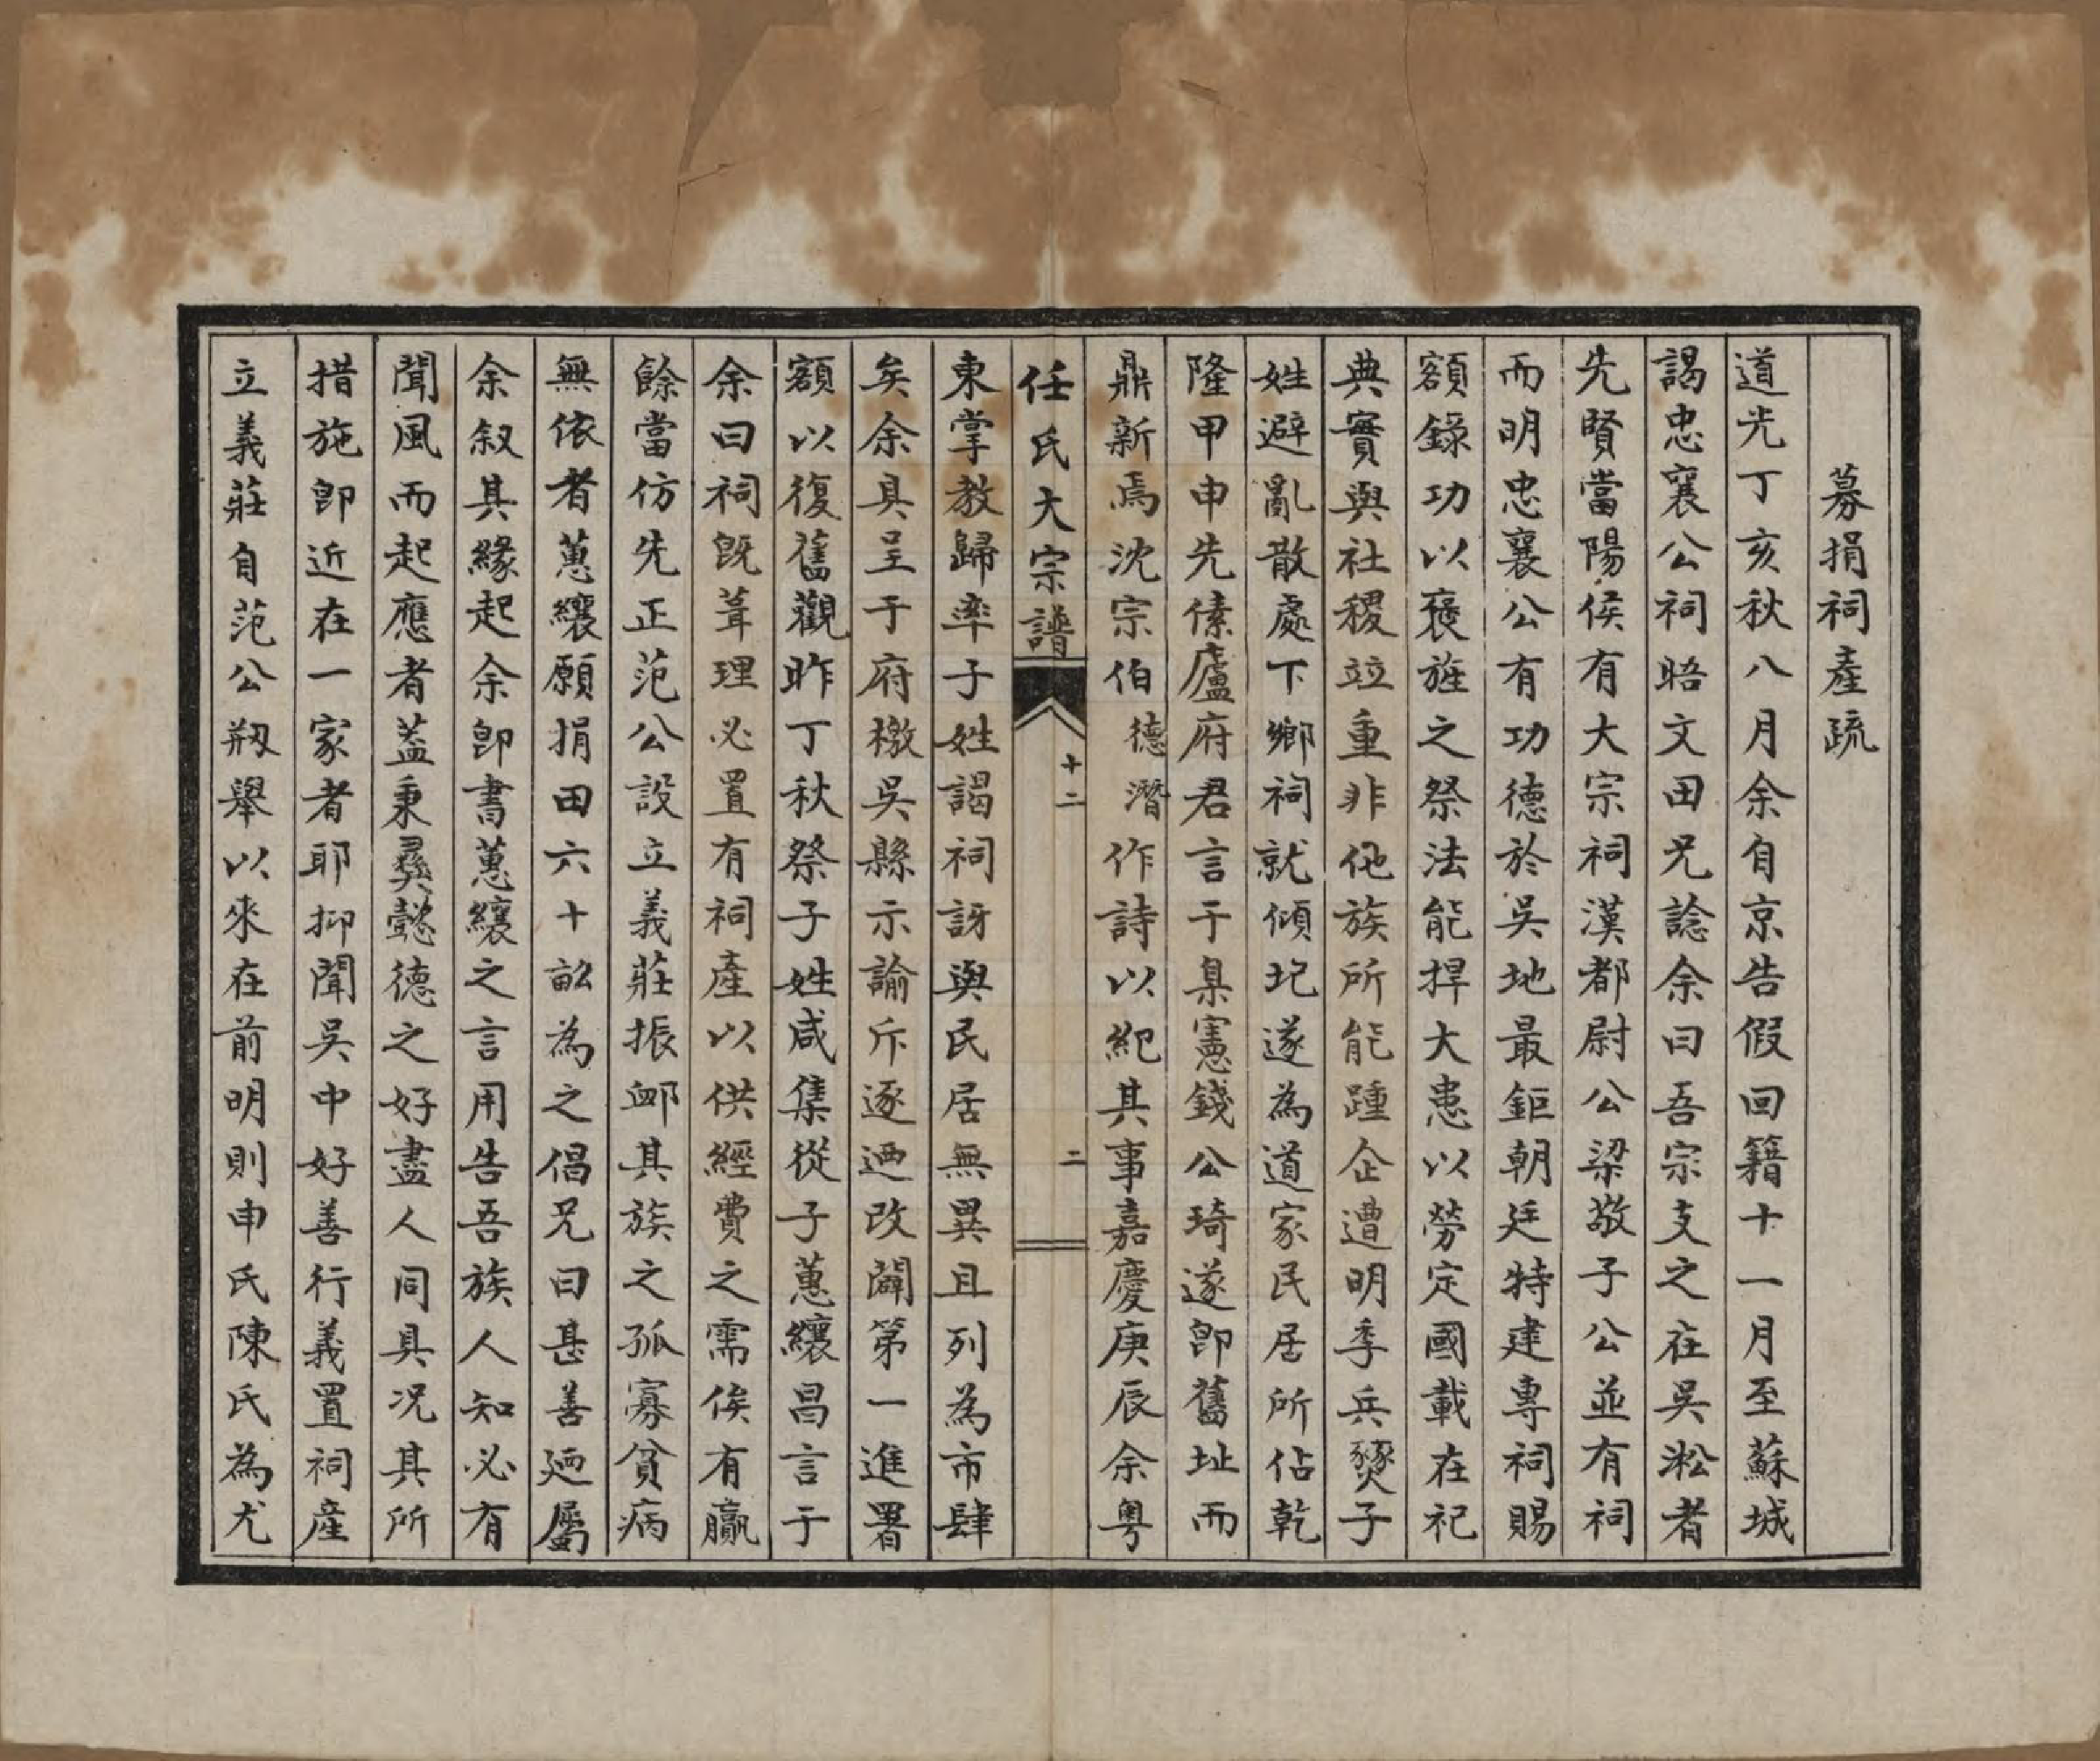 募捐祠產疏
道光丁亥秋八月余自京告假回籍十一月至蘇城
謁忠襄公祠晤文田兄諗余曰吾宗支之在吳淞者
先賢當陽侯有大宗祠漢都尉公梁敬子公並有祠
而明忠襄公有功德於吳地最鉅朝廷特建專祠賜
額錄功以襃旌之祭法能捍大患以勞定國載在祀
典實與社稷竝重非他族所能踵企遭明季兵燹子
姓避亂散處下鄉祠就傾圮遂為道家民居所佔乾
隆甲申先傃廬府君言于臬憲錢公琦遂卽舊址而
鼎新焉沈宗伯德潛作詩以紀其事嘉慶庚辰余粵
任氏大宗譜 十二 二
東掌教歸率子姓謁祠訝與民居無異且列為市肆
矣余具呈于府檄吳縣示諭斥逐迺改闢第一進署
額以復舊觀昨丁秋祭子姓咸集從子蕙纕昌言于
余曰祠旣葺理必置有祠產以供經費之需俟有贏
餘當仿先正范公設立義莊振卹其族之孤寡貧病
無依者蕙纕願捐田六十畝為之倡兄曰甚善廼屬
余叙其緣起余卽書蕙纕之言用告吾族人知必有
聞風而起應者蓋秉彝懿德之好盡人同具况其所
措施卽近在一家者耶抑聞吳中好善行義置祠產
立義莊自范公剏舉以來在前明則申氏陳氏為尤